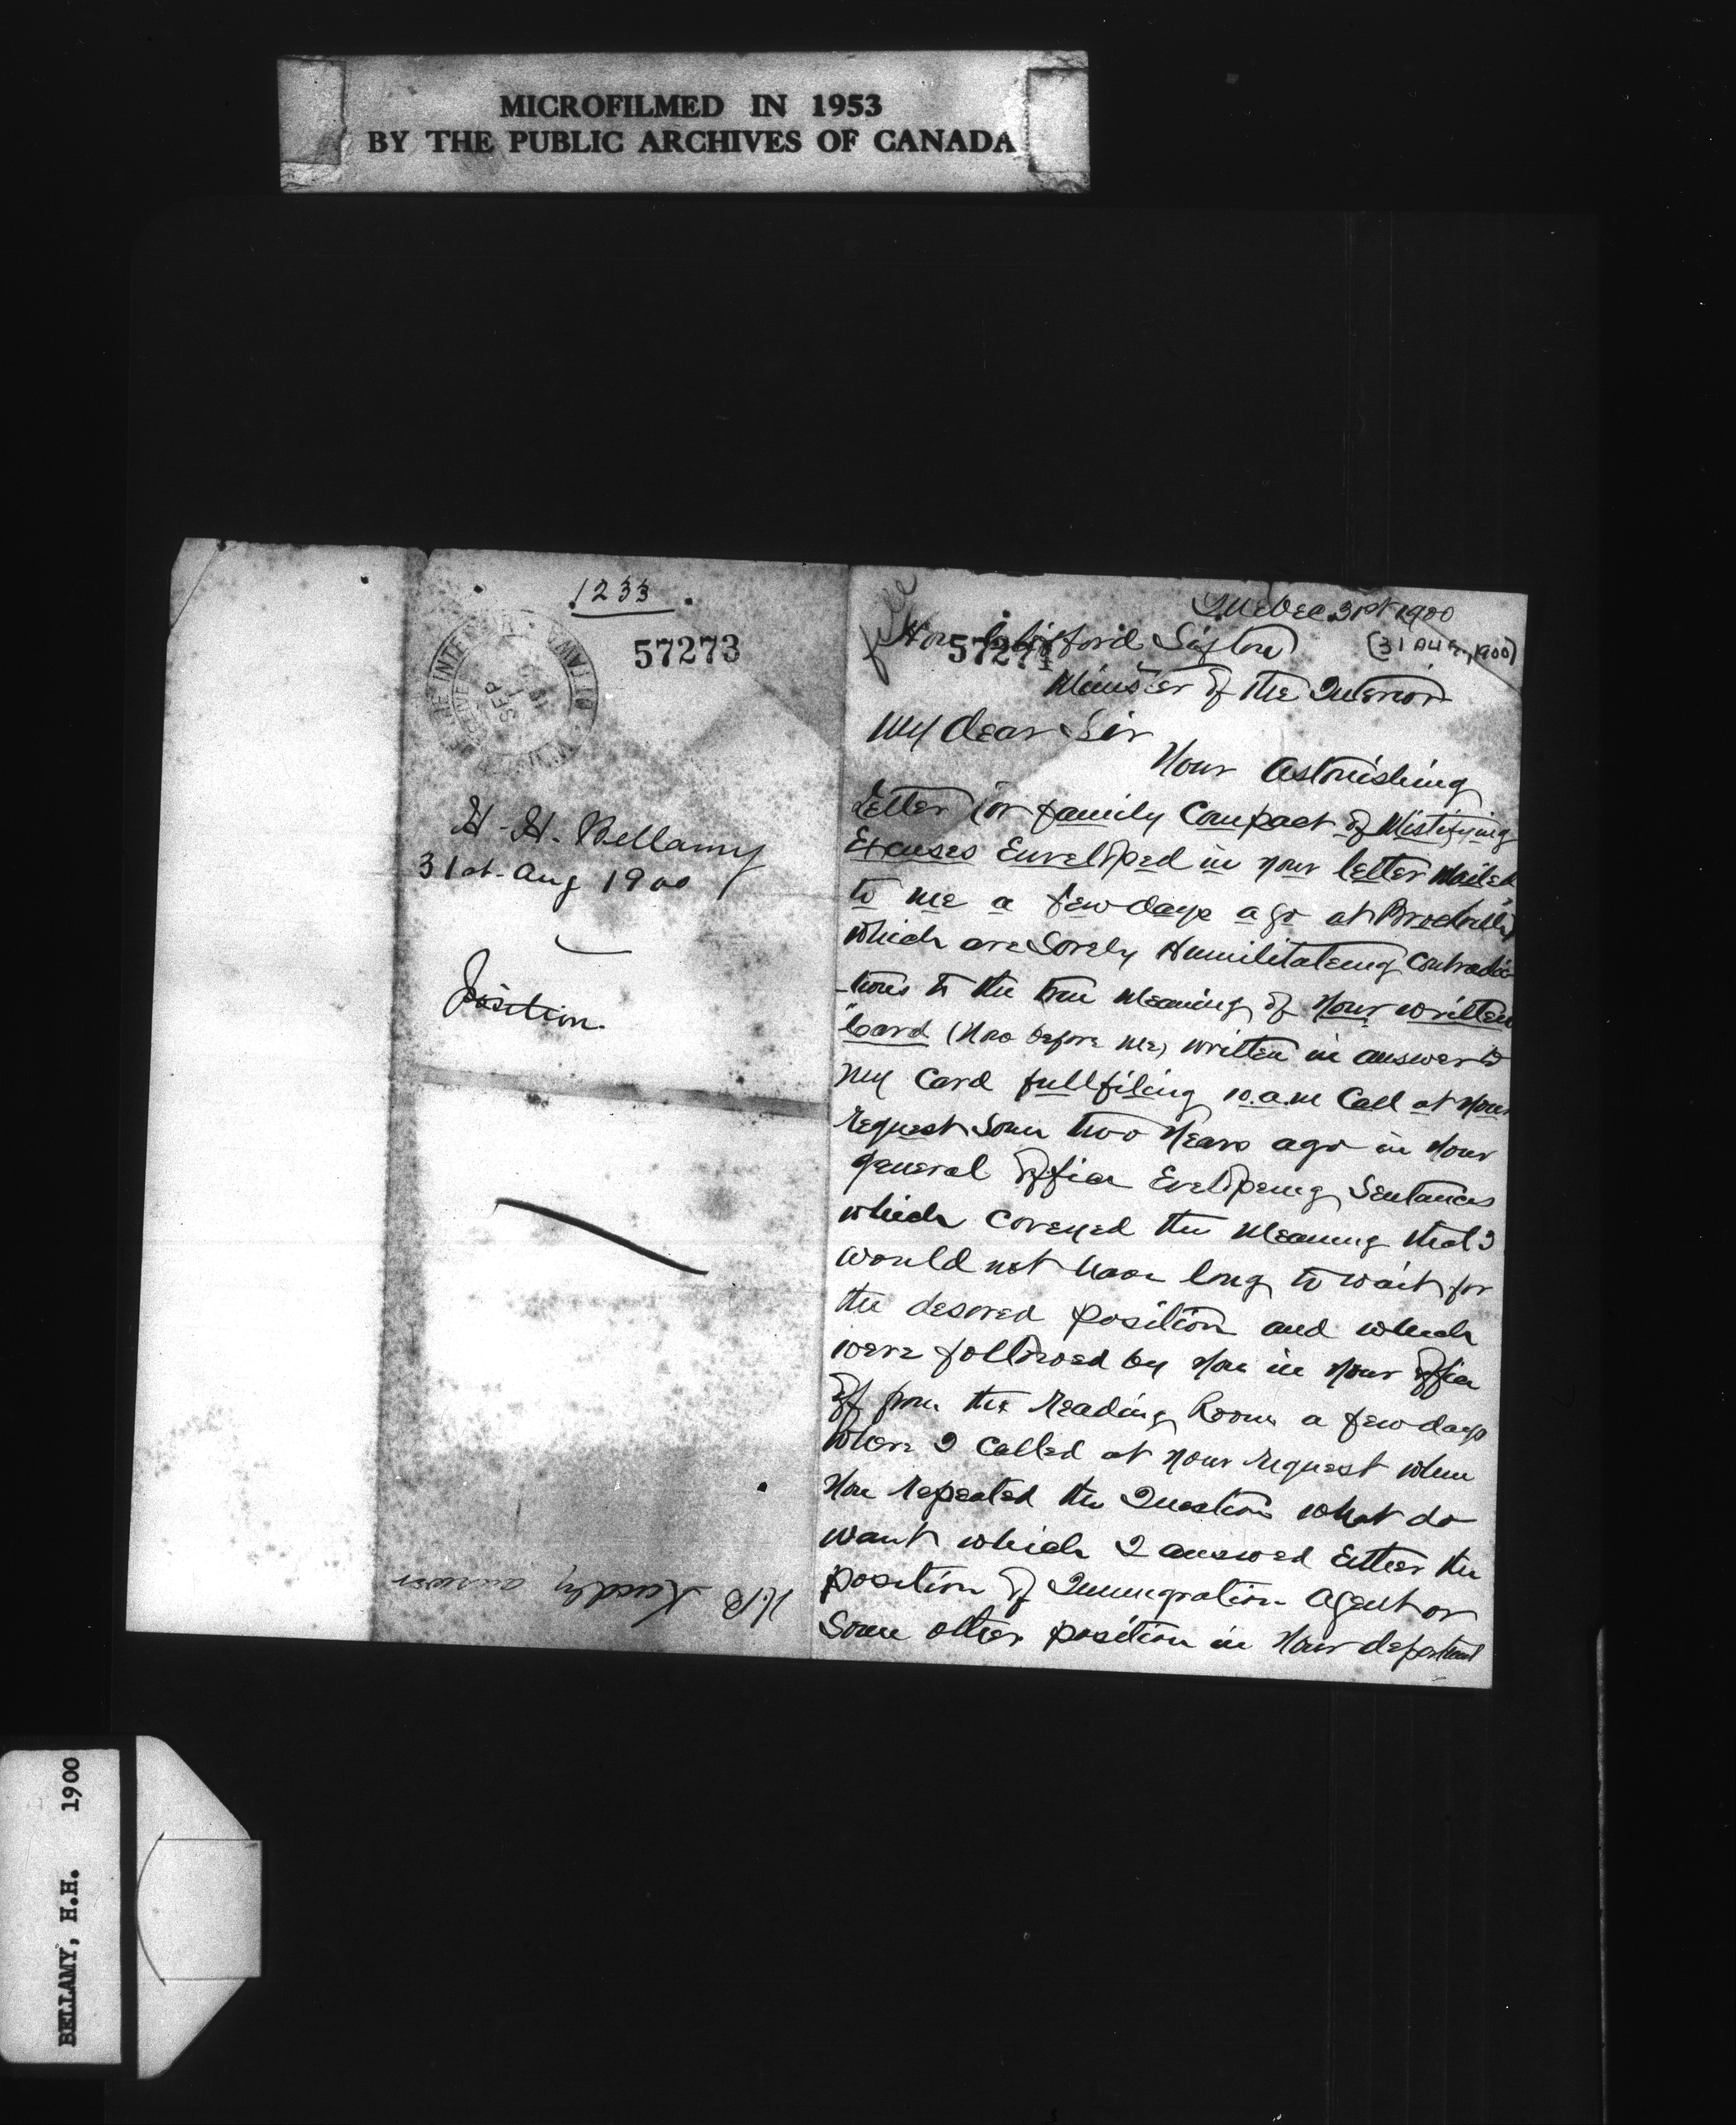 MICROFILMED IN 1953
BY THE PUBLIC ARCHIVES OF CANADA
1233
57273
SEP
H. H. Bellamy
31st Aug 1900
Position.
answer
file
Quebec 31st 1900
(31 Aug, 1900)
Hon Clifford Sifton
57274
Minister of the Interior
My dear Sir
Your Astonishing
Letter (or family Compact of Mistifying
Excuses Enveloped in your letter Mailed
to me a few days ago at Brockville
which are Sorely Humilitateing Contradic
-tions to the true Meaning of Your written
Card (Now before me) written in answer to
My Card fullfiling 10.a.m Call at Your
request Some two Years ago in Your
general Office Evelopeing Sentances
which coveyed the Meaning that I
would not have long to wait for
the desered position and which
were followed by You in Your Office
off from the Reading Room a few days
where I Called at Your request when
You repeated the Question what do
want which I answed Either the
position of Immigration Agent or
Some other position in Your department
BELLAMY, H.H. 1900